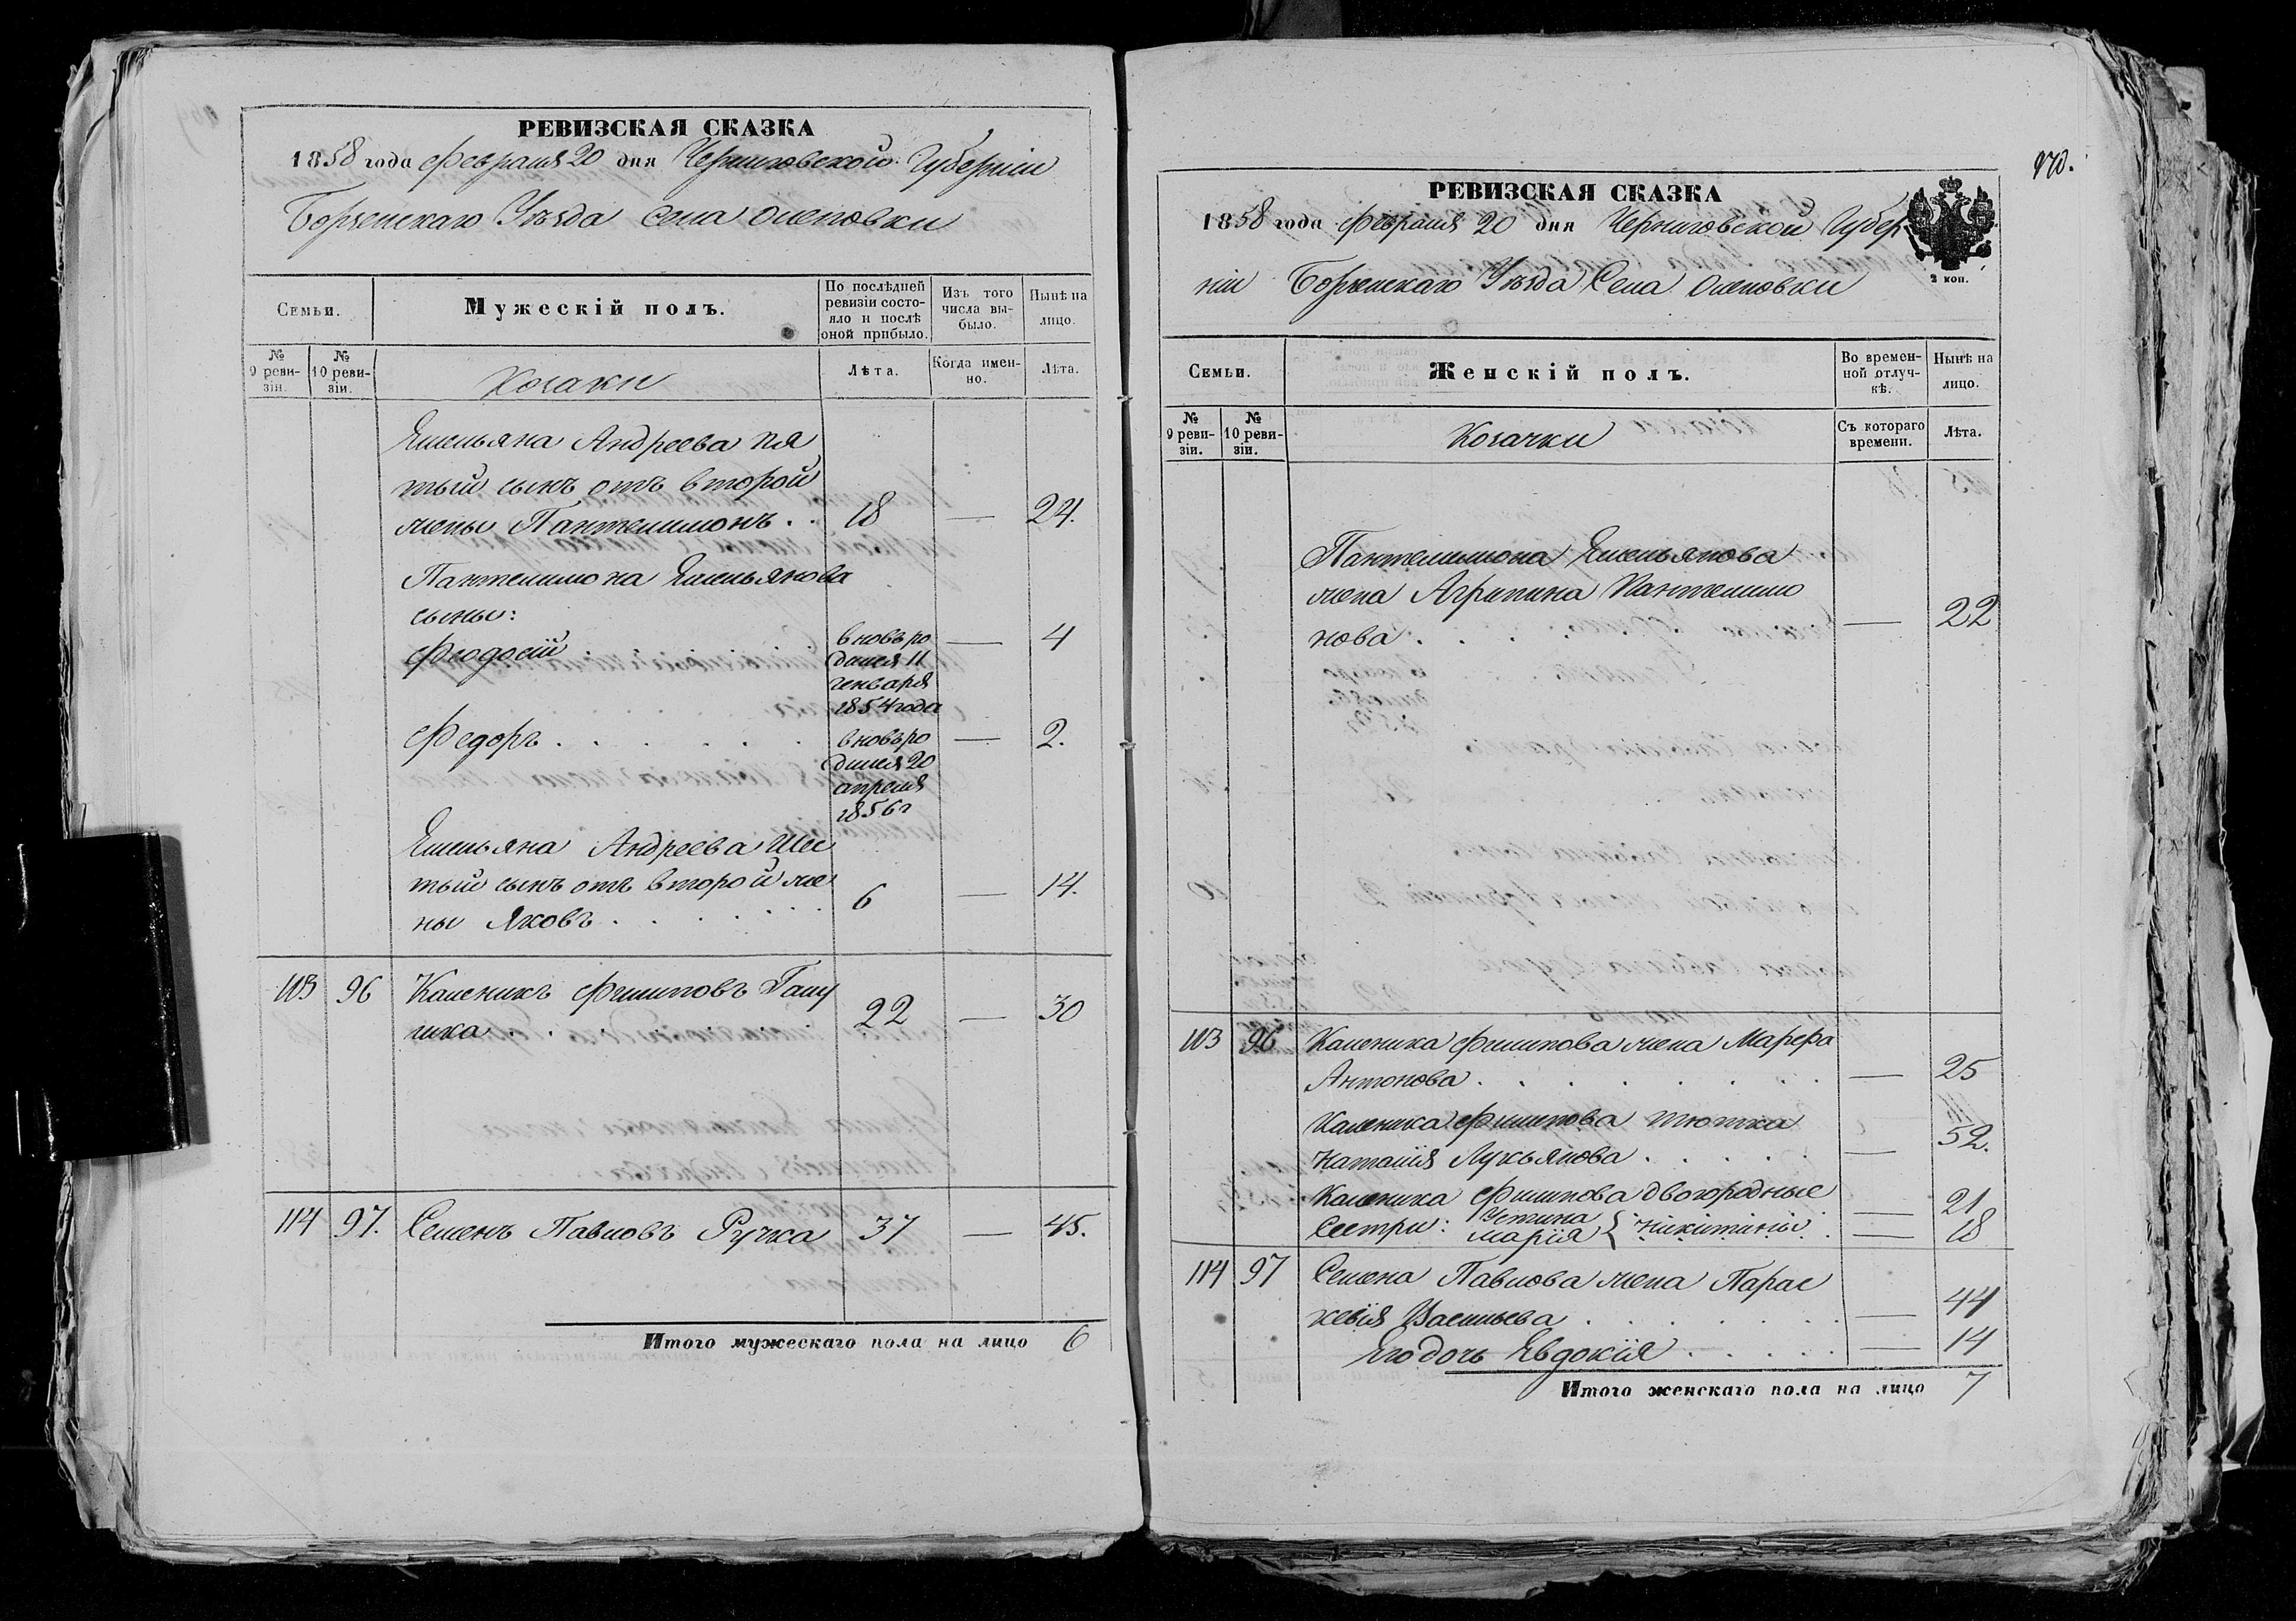 РЕВИЗСКАЯ СКАЗКА
1858 года Февраля 20 дня Черниговской Губерніи
Борзенскаго Уѣзда Села Оленовки
Семьи.
Мужескій полъ.
По послѣдней ревизіи состояло и послѣ оной прибыло.
Изъ того числа выбыло.
Нынѣ на лицо.
№ 9 ревизіи.
№ 10 ревизіи.
Козаки
Лѣта.
Когда именно.
Лѣта.
Емельяна Андреева пя
тый сынъ отъ второй
жены Пантелимонъ . . 18 — 24.
Пантелимона Емельянова
сыны:
Феодосій вновь ро — 4
дился 11
генваря
1854 года
Федоръ . . . . . . вновь ро — 2.
дился 20
апреля
1856 г
Емельяна Андреева Шес
тый сынъ отъ второй же
ны Яковъ . . . . . . 6 — 14.
113 96 Каленикъ Филиповъ Галу
шка . . 22 — 30
114 97. Семенъ Павловъ Ручка 37 — 45.
Итого мужескаго пола на лицо 6
970.
РЕВИЗСКАЯ СКАЗКА
1858 года Февраля 20 дня Черниговской Губер
ніи Борзенскаго Уѣзда Села Оленовки
2 коп.
Семьи.
Женскій полъ.
Во временной отлучкѣ.
Нынѣ на лицо.
№ 9 ревизіи.
№ 10 ревизіи.
Козачки
Съ котораго времени.
Лѣта.
Пантелимона Емельянова
жена Агрипина Пантелимо
нова . . . . . — 22
113 96 Каленика Филипова жена Марфа
Антонова . . . . . . . — 25
Каленика Филипова тютка
Наталія Лукьянова . . . . . — 52.
Каленика Филипова двогородные
Сестри: Устина . — 21
Марія } Никитины . — 18
114 97 Семена Павлова жена Парас
кевія Васильева . . . . . . . — 44
Его дочь Евдокія . . . . . — 14
Итого женскаго пола на лицо 7